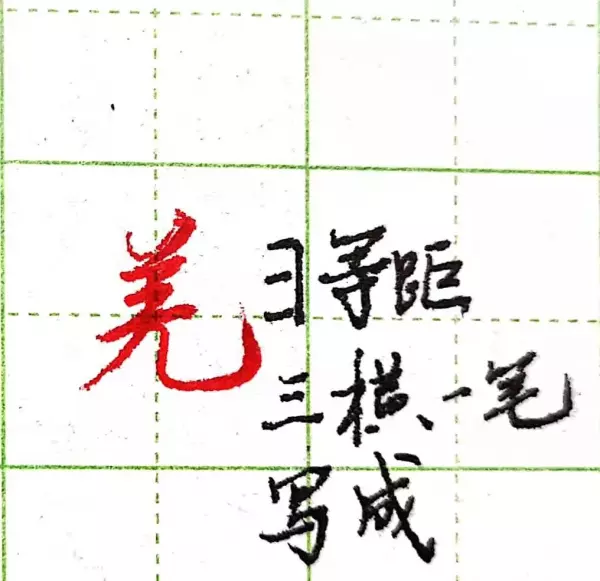 羌
彐等距
三横、一笔
写成